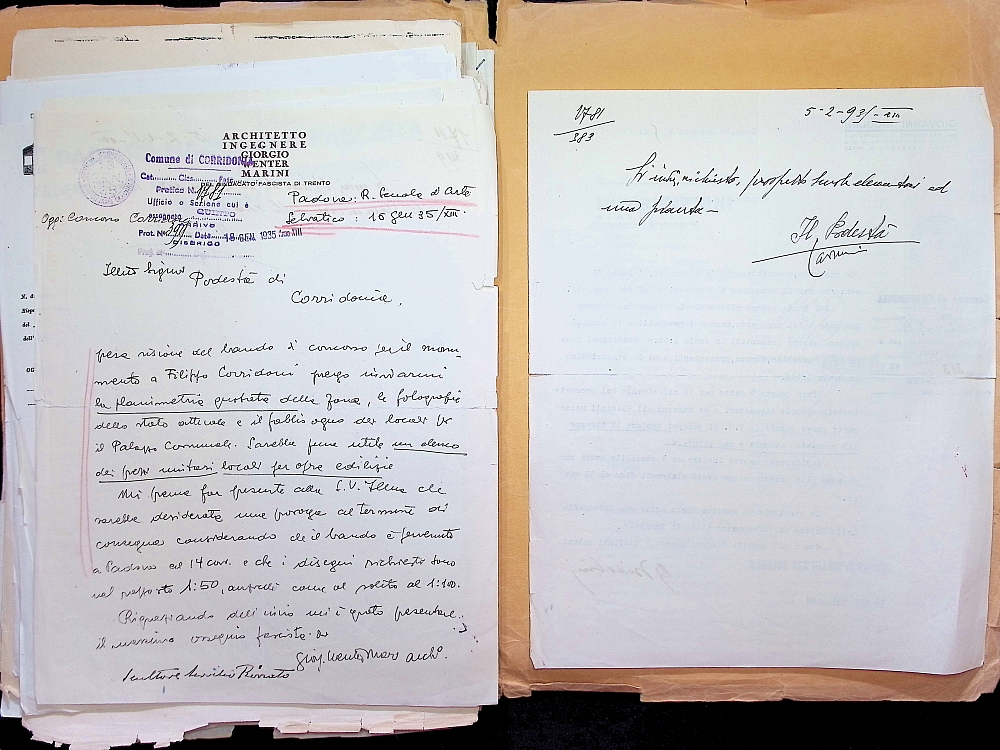 ARCHITETTO
INGEGNERE
GIORGIO
WENTER
MARINI
DEL SINDACATO FASCISTA DI TRENTO
Comune di CORRIDONIA
Cat. Clas. Fasc.
Pratica N. 1781
Ufficio o Sezione cui è
assegnato QUINTO
ARRIVO
Prot. N. 399 Data 18 GEN 1935 Anno XIII
Padova: R. Scuola d'Arte
Selvatico: 16 gen 35/XIII.
Ogg: Concorso Corridoni
Ill.mo Signor Podestà di
Corridonia,
presa visione del bando di concorso per il monu-
mento a Filippo Corridoni prego inviarmi
la planimetria quotata della zona, le fotografie
dello stato attuale e il fabbisogno dei locali per
il Palazzo Comunale. Sarebbe pure utile un elenco
dei prezzi unitari locali per opre edilizie
Mi preme far presente alla S.V. Ill.ma che
sarebbe desiderata una proroga al termine di
consegna considerando che il bando è pervenuto
a Padova il 14 corr. e che i disegni richiesti sono
nel rapporto 1:50, anziché come al solito al 1:100.
Ringraziando dell'invio mi è grato presentare
il massimo ossequio fascista.
Giorg. Wenter Marini archo.
scultore Servilio Rizzato
1781
383
5-2-935-XIII
richiesto,
ed
una pianta -
Il Podestà